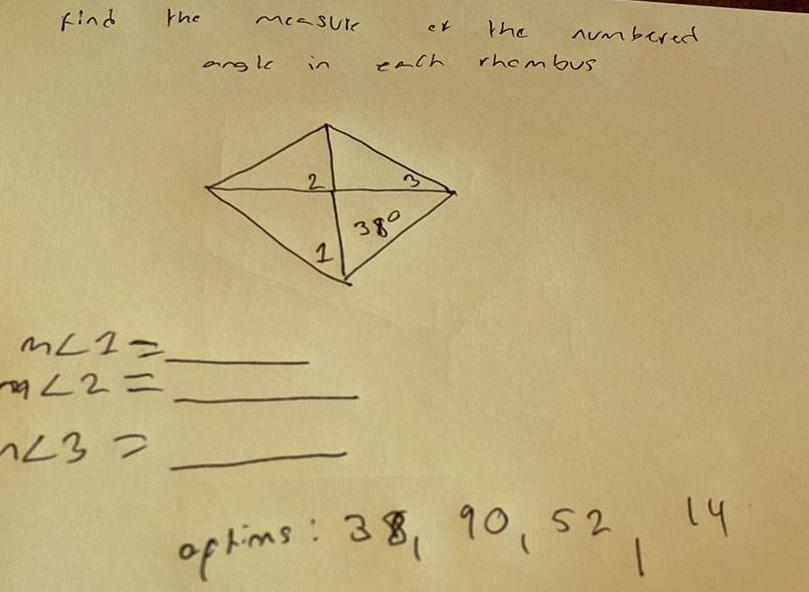 find the measure of the numbered
angle in each rhombus
2 3
38°
1
m<1 = ______
m<2 = ______
m<3 = ______
options: 38, 90, 52, 14